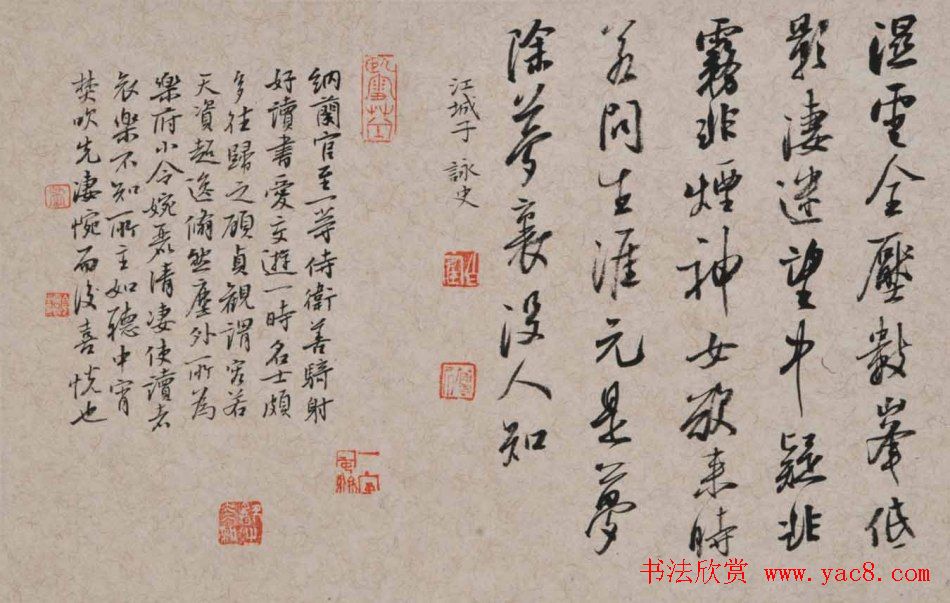 湿雲全壓數峯低
影淒迷望中疑非
霧非煙神女欲来時
若問生涯元是夢
除夢裏没人知
江城子 詠史
納蘭官至一等侍衛善騎射
好讀書愛交遊一時名士頗
多往歸之顧貞觀謂容若
天資超逸翛然塵外所為
樂府小令婉麗清淒使讀者
哀樂不知所主如聽中宵
梵吹先淒惋而後喜悦也
书法欣赏 www.yac8.com